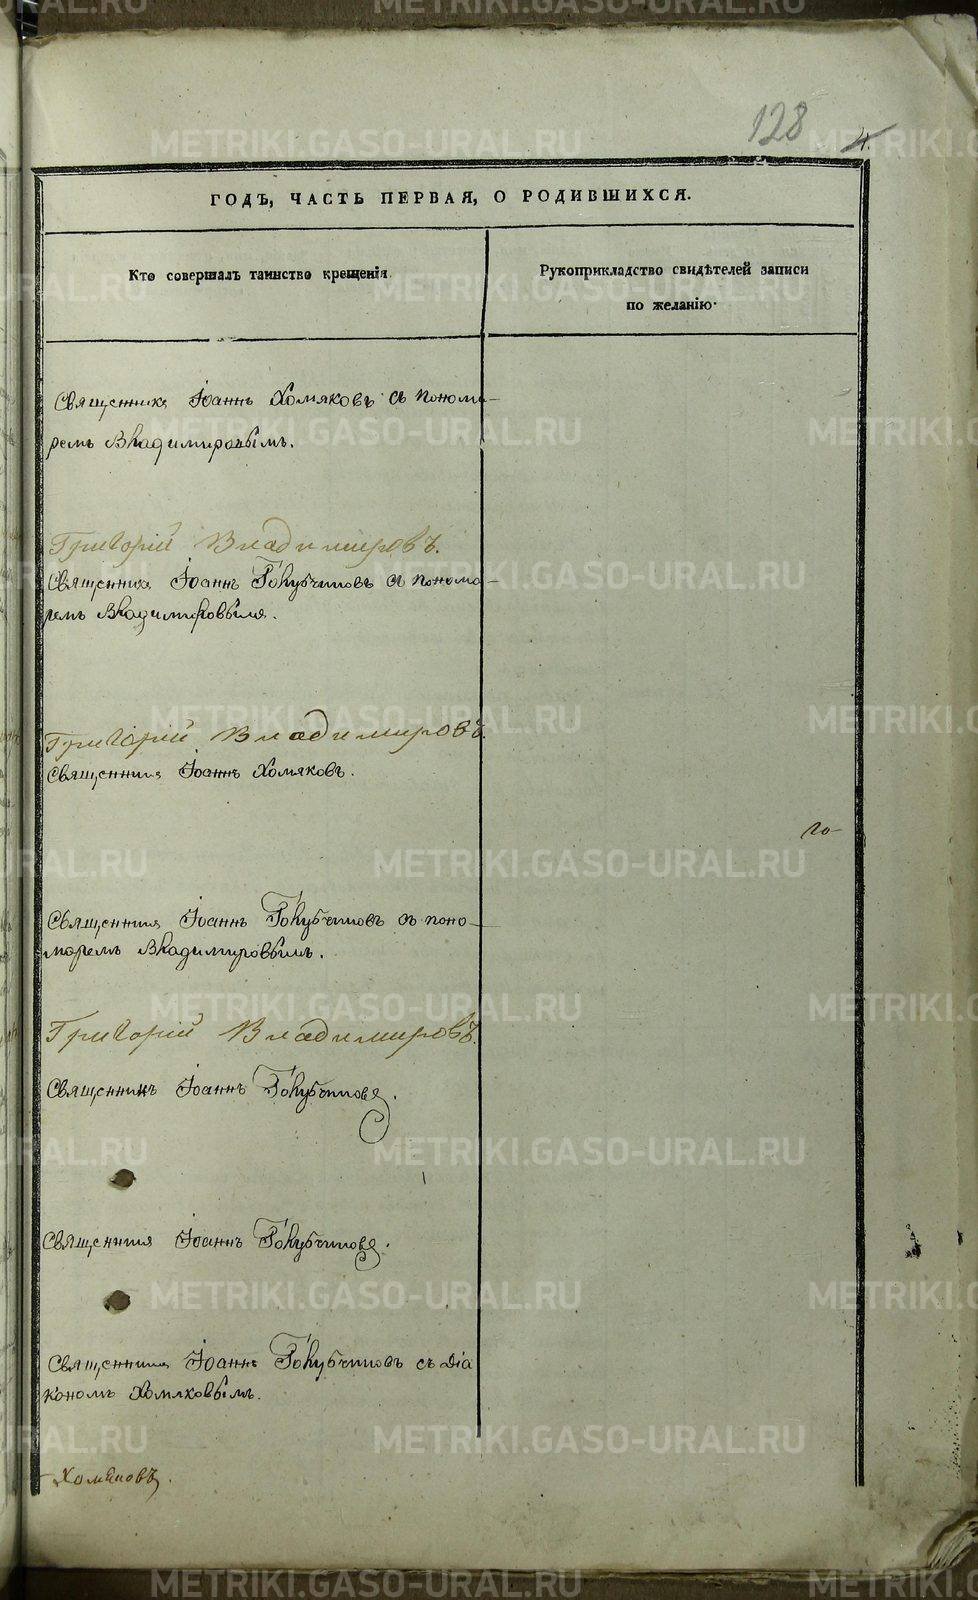 128
4.
ГОДЪ, ЧАСТЬ ПЕРВАЯ, О РОДИВШИХСЯ.
Кто совершалъ таинство крещенія
Рукоприкладство свидѣтелей записи
по желанію.
Священникъ Іоаннъ Хомяковъ съ понома-
ремъ Владимировымъ.
Григорій Владимировъ.
Священникъ Іоаннъ Голубчиковъ съ понома-
ремъ Владимировымъ.
Григорій Владимировъ.
Священникъ Іоаннъ Хомяковъ.
го-
Священникъ Іоаннъ Голубчиковъ съ поно-
маремъ Владимировымъ.
Григорій Владимировъ.
Священникъ Іоаннъ Голубчиковъ.
Священникъ Іоаннъ Голубчиковъ.
Священникъ Іоаннъ Голубчиковъ съ діа
кономъ Хомяковымъ.
Хомяковъ.
METRIKI.GASO-URAL.RU